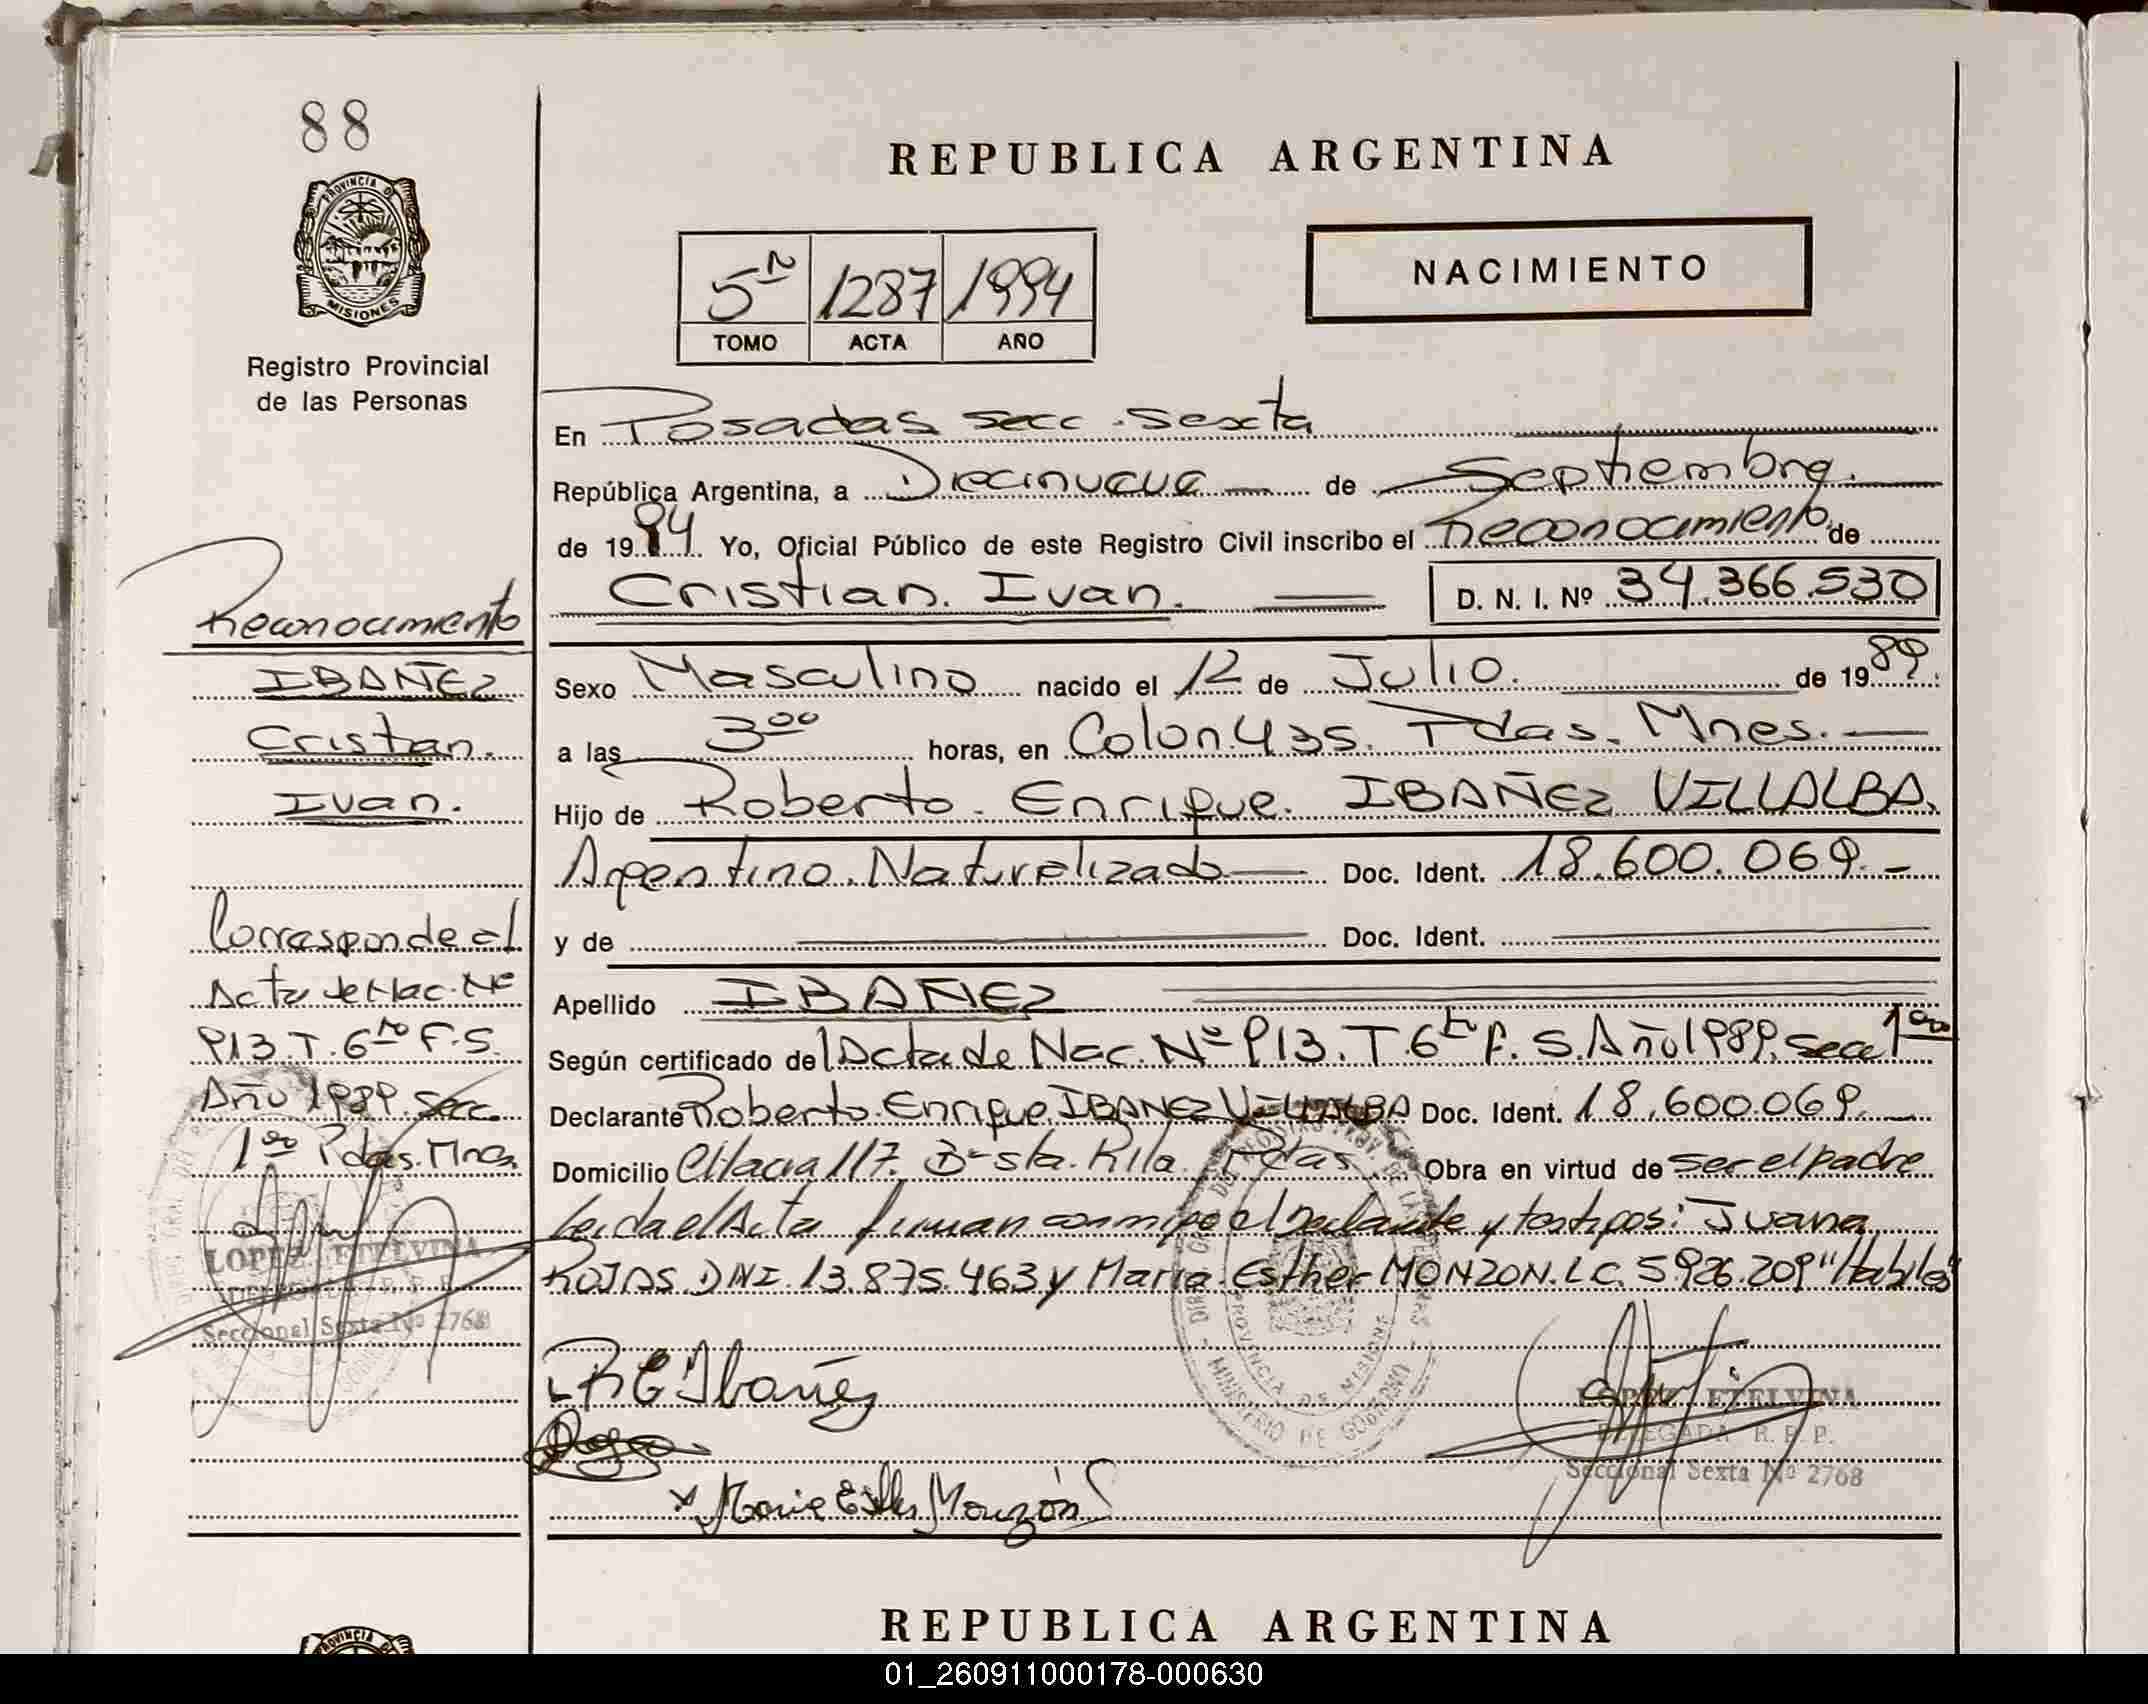 88
PROVINCIA DE
MISIONES
Registro Provincial
de las Personas
REPUBLICA ARGENTINA
5to 1287 1994
TOMO ACTA AÑO
NACIMIENTO
En Posadas secc. sexta
República Argentina, a Diecinueve de Septiembre.
de 1994 Yo, Oficial Público de este Registro Civil inscribo el Reconocimiento de
Cristian Ivan. D. N. I. Nº 34.366.530
Sexo Masculino nacido el 12 de Julio. de 1989
a las 3 00 horas, en Colon 435. Pdas. Mnes.
Hijo de Roberto Enrique IBAÑEZ VILLALBA.
Argentino Naturalizado Doc. Ident. 18.600.069.-
y de Doc. Ident.
Apellido IBAÑEZ
Según certificado del Acta de Nac. Nº 913. T. 6to F. S. Año 1989. secc 1era
Declarante Roberto Enrique IBAÑEZ VILLALBA Doc. Ident. 18.600.069.
Domicilio 117. Bº sta. Rita Pdas Obra en virtud de ser el padre
Leida el Acta firman conmigo el Declarante y testigos: Juana
ROJAS DNI. 13.875.463 y Maria Esther MONZON. LC. 5.926.209 "Habiles"
R E Ibañez
Maria Esther Monzón
LOPEZ ETELVINA
DELEGADA R. P. P.
Seccional Sexta Nº 2768
PROVINCIA DE MISIONES
MINISTERIO DE GOBIERNO
Reconocimiento
IBAÑEZ
Cristian.
Ivan.
Corresponde al
Acta de Nac. Nº
913. T. 6to F. S.
Año 1989. Secc
1era Pdas. Mnes.
LOPEZ ETELVINA
DELEGADA R. P. P.
Seccional Sexta Nº 2768
PROVINCIA
REPUBLICA ARGENTINA
01_260911000178-000630